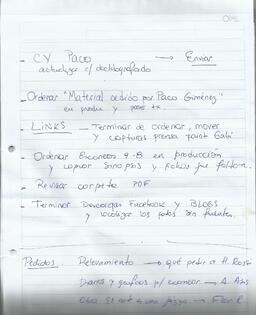 - CV Paco → Enviar
actualizar c/ dactilografiado
- Ordenar "Material cedido por Paco Giménez"
en produc y para tx.
- LINKS - Terminar de ordenar, mover
y capturas prensa point Gabi
- Ordenar Encontros 9-B en producción
y copiar sinopsis y fichas que faltan.
- Revisar carpeta PDF
- Terminar Descargas Facebook y BLOGS
y localizar las fotos sin fuentes.
Pedidos. Relevamiento → qué pedir a H. Rossi
Diarios y graficas p/ escanear → A.
Obra El → Flor